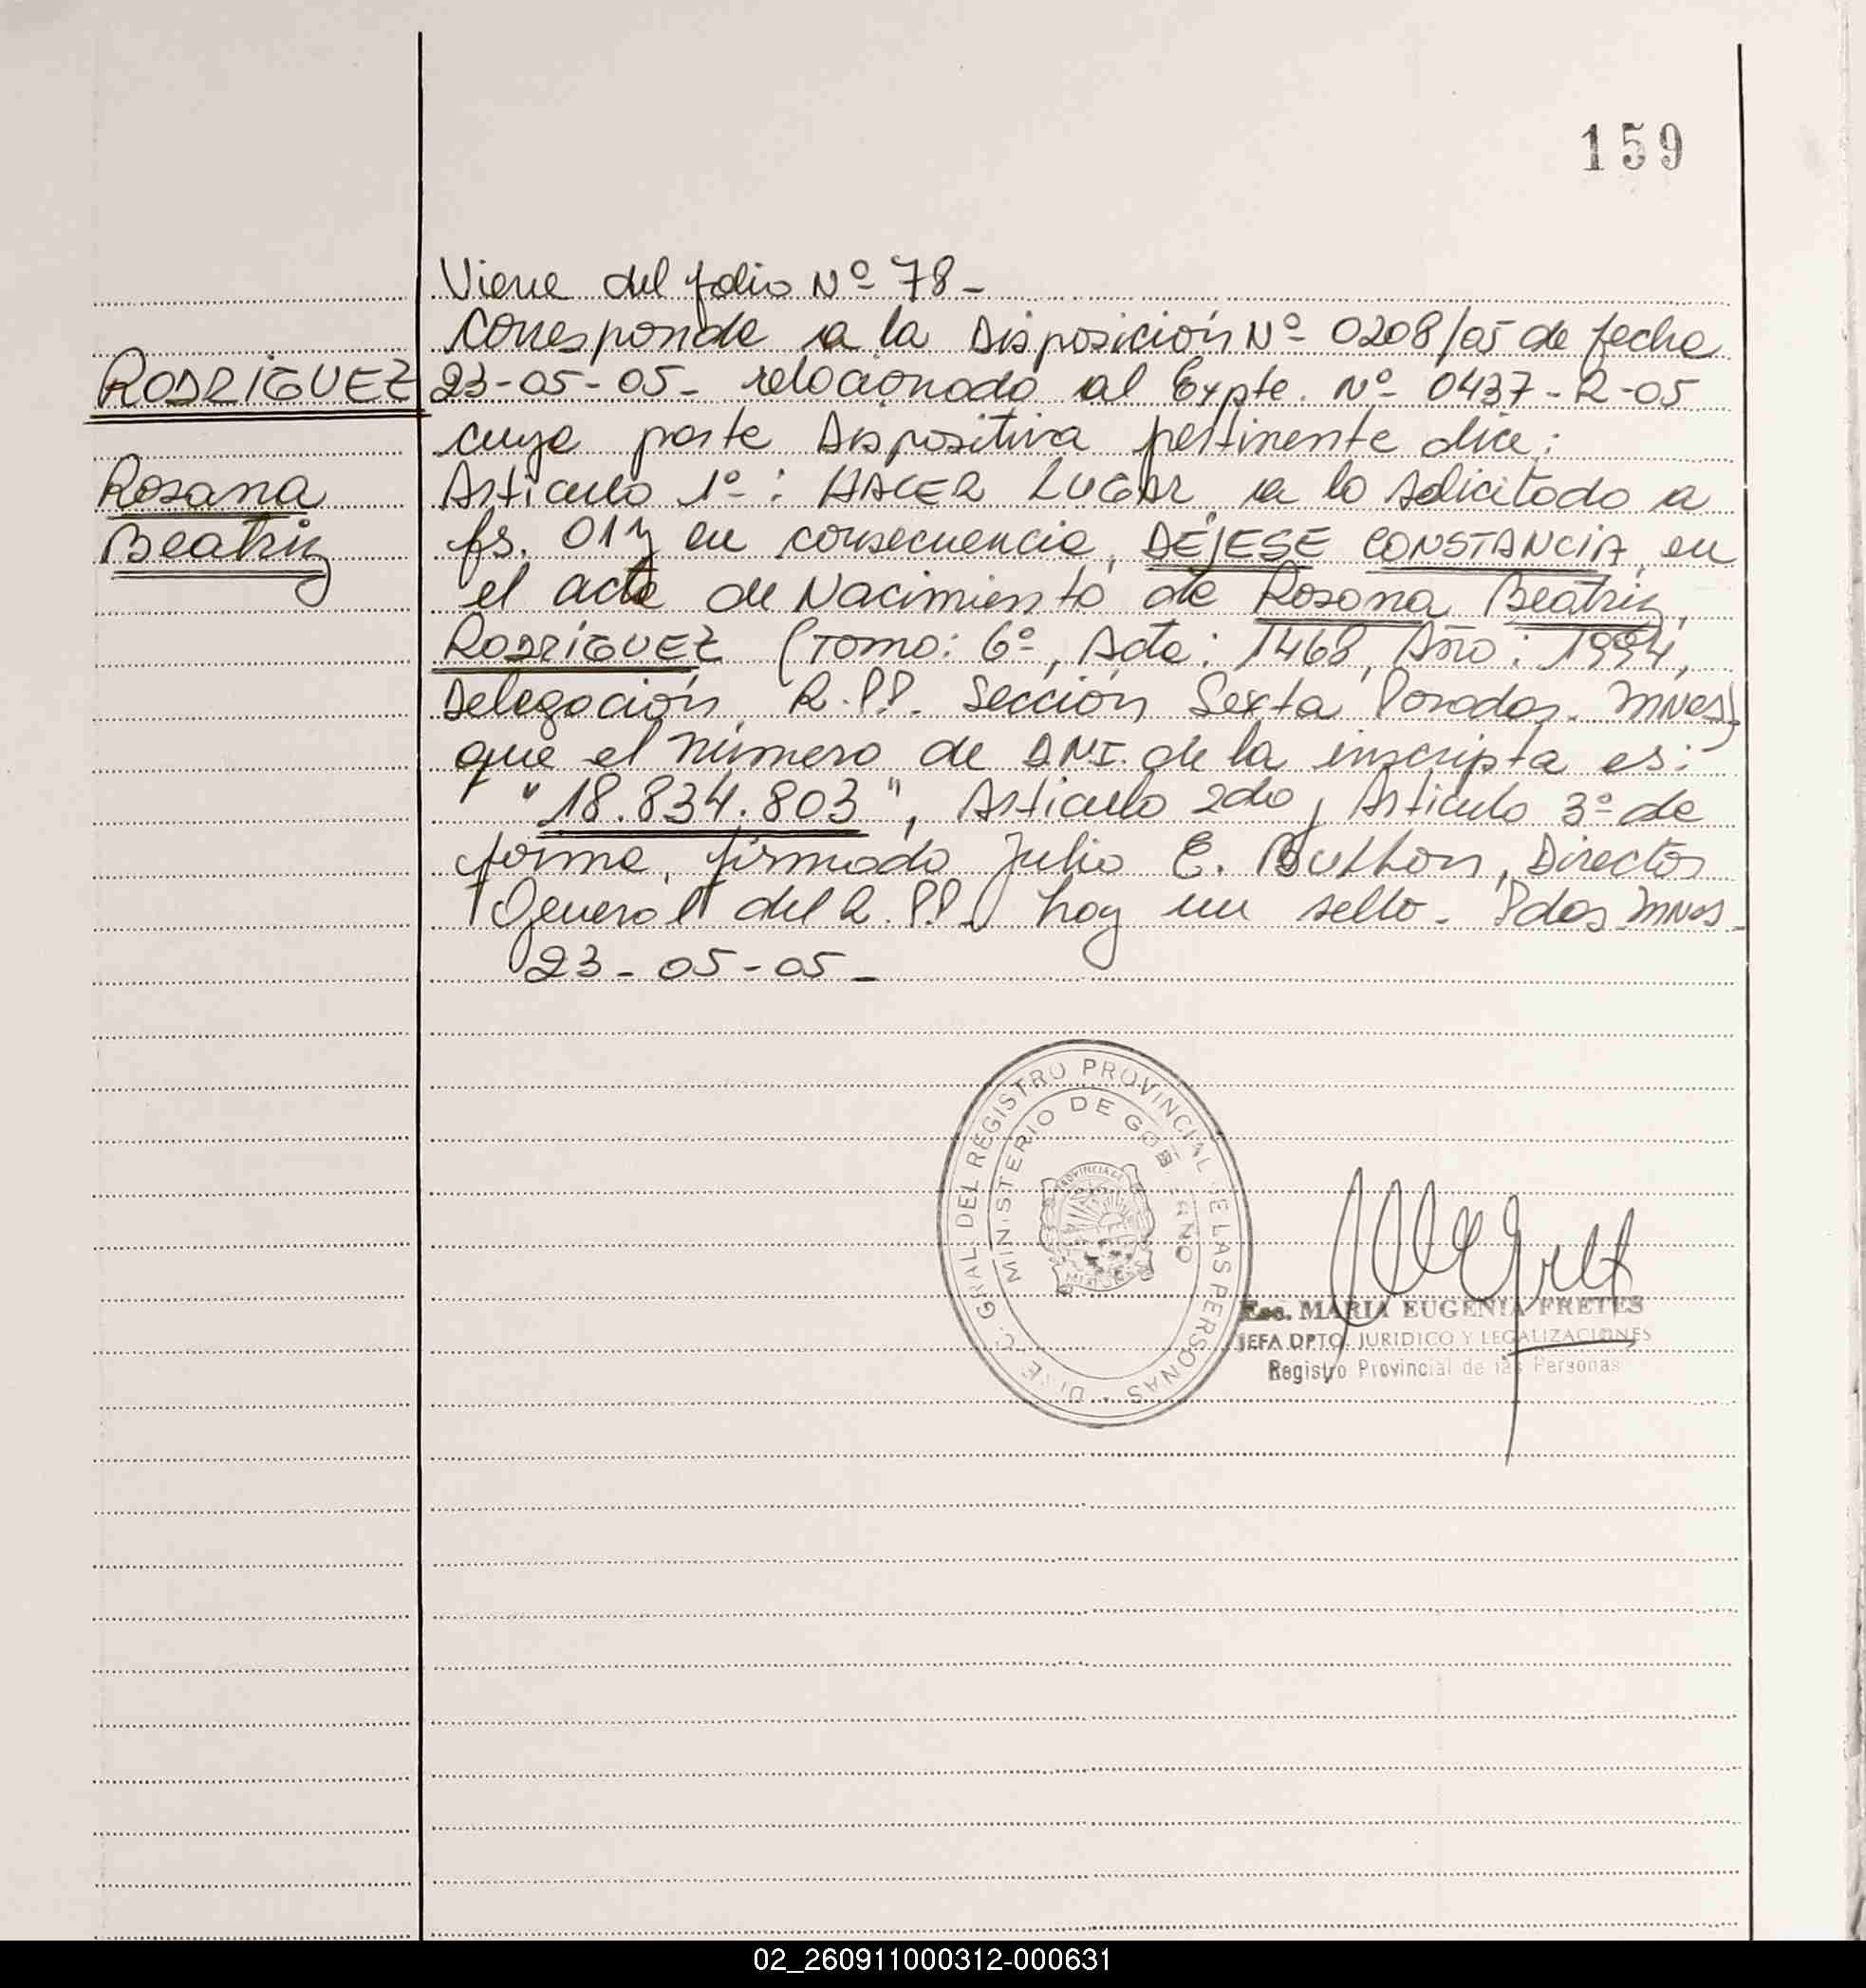 159
Viene del folio Nº 78-
Corresponde a la Disposición Nº 0208/05 de fecha
RODRIGUEZ 23-05-05- relacionado al Expte. Nº 0437-R-05
cuya parte Dispositiva pertinente dice:
Rosana Artículo 1º: HACER LUGAR a lo solicitado a
Beatriz fs. 01 y en consecuencia, DÉJESE CONSTANCIA, en
el acta de Nacimiento de Rosana Beatriz
RODRIGUEZ (Tomo: 6º, Acta: 1468, Año: 1994,
Delegación R.P.P. Sección Sexta Posadas. Mnes)
que el número de DNI. de la inscripta es:
"18.834.803", Artículo 2do y Artículo 3º de
forma, firmado Julio E. Button, Director
General del R.P.P. hay un sello. Pdas Mnes-
23-05-05-
DIREC. GRAL. DEL REGISTRO PROVINCIAL DE LAS PERSONAS
MINISTERIO DE GOBIERNO
PROVINCIA DE
MISIONES
Esc. MARIA EUGENIA FRETES
JEFA DPTO. JURIDICO Y LEGALIZACIONES
Registro Provincial de las Personas
02_260911000312-000631